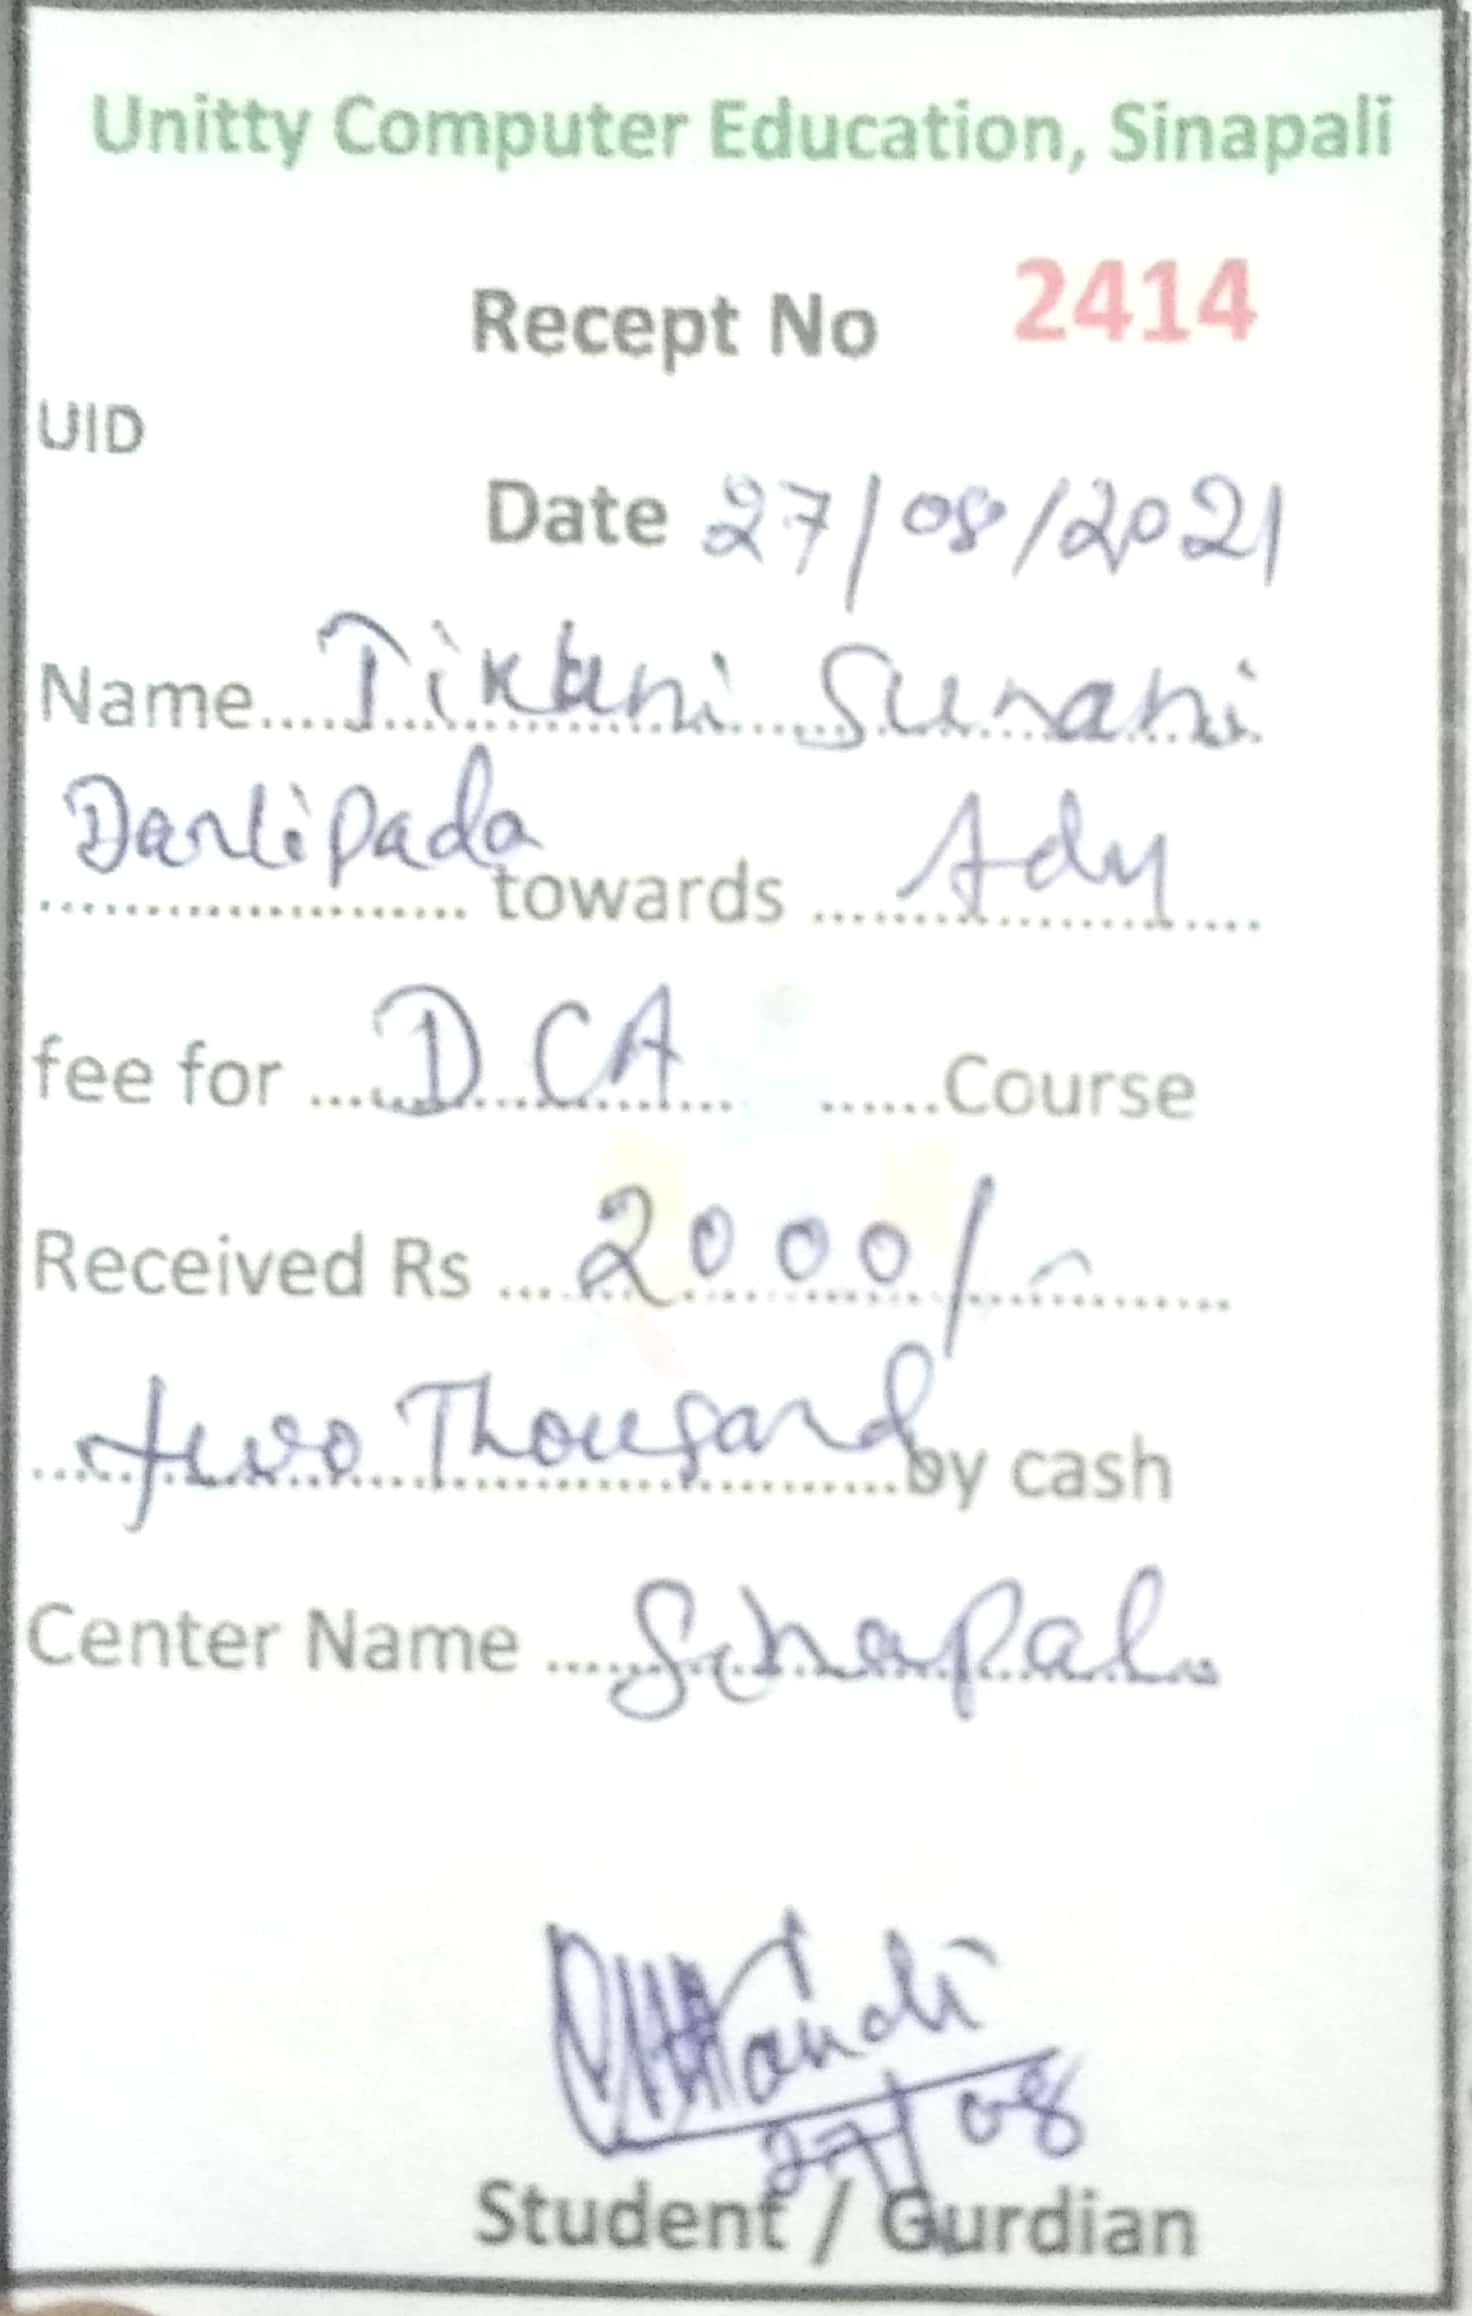 Unitty Computer Education, Sinapali
Recept No 2414
UID
Date 27/08/2021
Name.... Sunani
Darlipada towards .... Adm
fee for .... DCA ....Course
Received Rs ... 2000/-
two Thousand by cash
Center Name .... Sinapali
27/08
Student / Gurdian